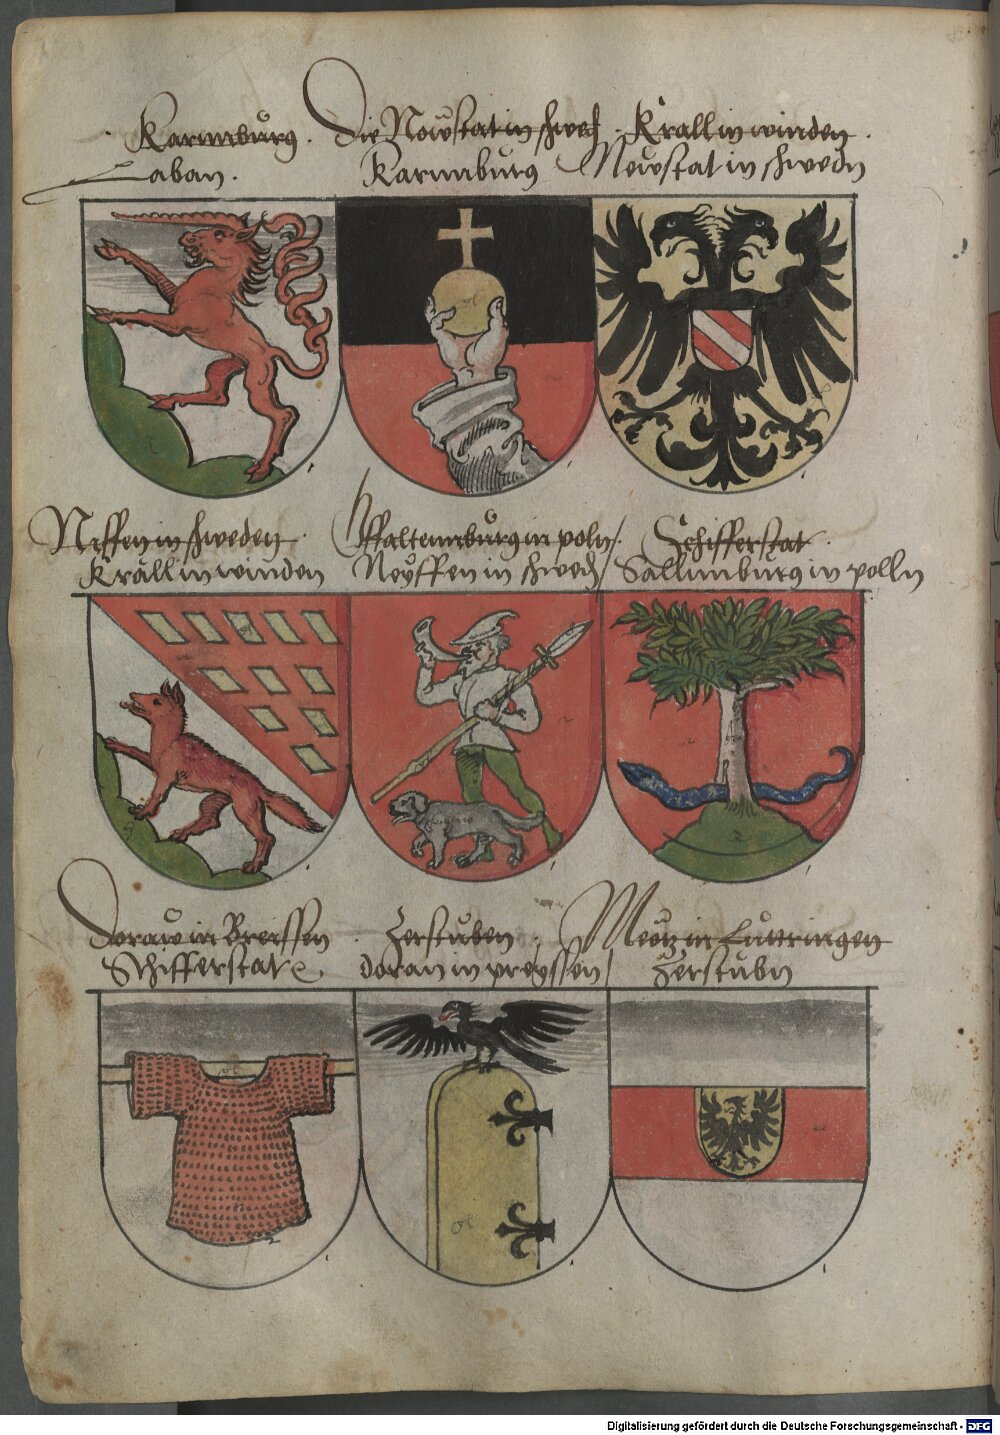 Karmburg . Die Newstat in schwed . Krall in winden .
Laban . Karmburg Newstat in schwedn
Neffen in schweden . Pfaltemburg in poln / . Schifferstat .
Krall in winden Neyffen in schwed / Sallmburg in polln
Doraw in Breissen . Zerstuben . Metz in Luttringen
Schifferstat doran in preyssen / Zerstubn
Digitalisierung gefördert durch die Deutsche Forschungsgemeinschaft - DFG